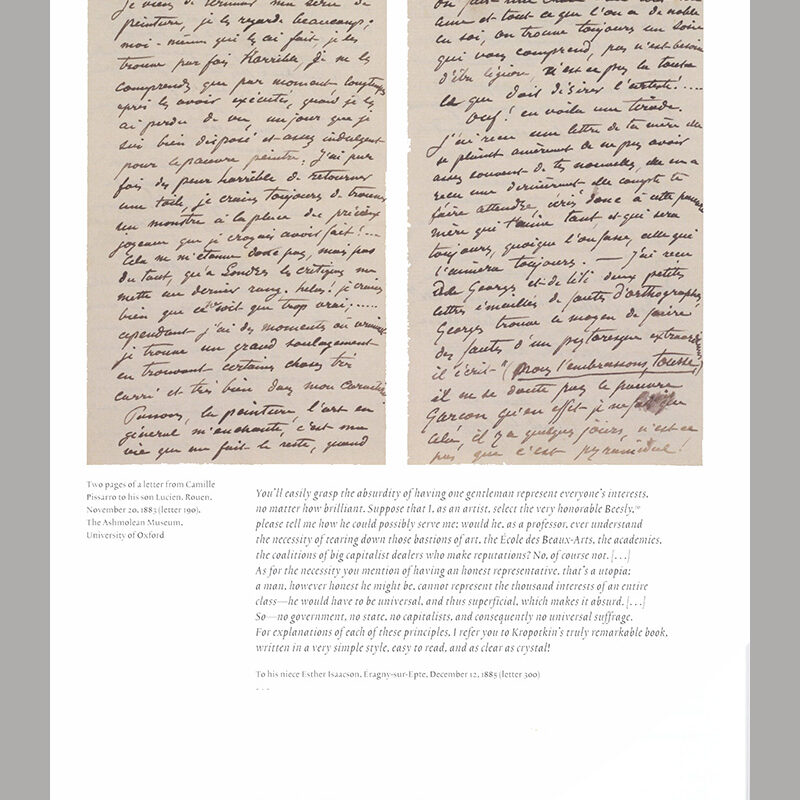 Je viens de terminer ma série de
peinture, je les regarde beaucoup;
moi-même qui les ai fait je les
trouve par fois horrible, je ne les
comprends que par moment, longtemps
après les avoir exécutés, quand je les
ai perdu de vue, un jour que je
suis bien disposé et assez indulgent
pour le pauvre peintre. J'ai par
fois des peur horrible de retourner
une toile, je crains toujours de trouver
un monstre à la place des précieux
joyaux que je croyais avoir fait!...
Cela ne m'étonne donc pas, mais pas
du tout, qu'à Londres les critiques me
mette au dernier rang. helas! je crains
bien que ce soit que trop vrai;.....
cependant j'ai des moments où vraiment
je trouve un grand soulagement
en trouvant certaines choses très
carré et très bien dans mon caractère
Passons, la peinture, l'art en
général m'enchante, c'est ma
vie que me fait le reste, quand
âme et tout ce que l'on a de noble
en soi, on trouve toujours un
qui vous comprend, pas n'est besoin
d'être légion, n'est ce pas là tout
ce que doit désirer l'artiste!.....
ouf! en voilà une tirade.
J'ai reçu une lettre de ta mère elle
se plaint amèrement de ne pas avoir
assez souvent de tes nouvelles, elle en a
reçu une dernièrement elle compte te
faire attendre, écris donc à cette pauvre
mère qui t'aime tant, et qui sera
toujours, quoique l'on fasse, celle qui
t'aimera toujours. — J'ai reçu
de Georges et de Titi deux petites
lettres émaillés de fautes d'orthographe
Georges trouve le moyen de faire
des fautes d'un pittoresque extraordinaire
il écrit "(nous l'embrassons tousse)
il ne se doute pas le pauvre
Garçon qu'en effet je ne que
cela, il y a quelques jours, n'est ce
pas que c'est pyramidal!
Two pages of a letter from Camille
Pissarro to his son Lucien, Rouen,
November 20, 1883 (letter 190),
The Ashmolean Museum,
University of Oxford
You'll easily grasp the absurdity of having one gentleman represent everyone's interests,
no matter how brilliant. Suppose that I, as an artist, select the very honorable Beesly,
please tell me how he could possibly serve me; would he, as a professor, ever understand
the necessity of tearing down those bastions of art, the École des Beaux-Arts, the academies,
the coalitions of big capitalist dealers who make reputations? No, of course not. [...]
As for the necessity you mention of having an honest representative, that's a utopia;
a man, however honest he might be, cannot represent the thousand interests of an entire
class—he would have to be universal, and thus superficial, which makes it absurd. [...]
So—no government, no state, no capitalists, and consequently no universal suffrage.
For explanations of each of these principles, I refer you to Kropotkin's truly remarkable book,
written in a very simple style, easy to read, and as clear as crystal!
To his niece Esther Isaacson, Éragny-sur-Epte, December 12, 1885 (letter 300)
...